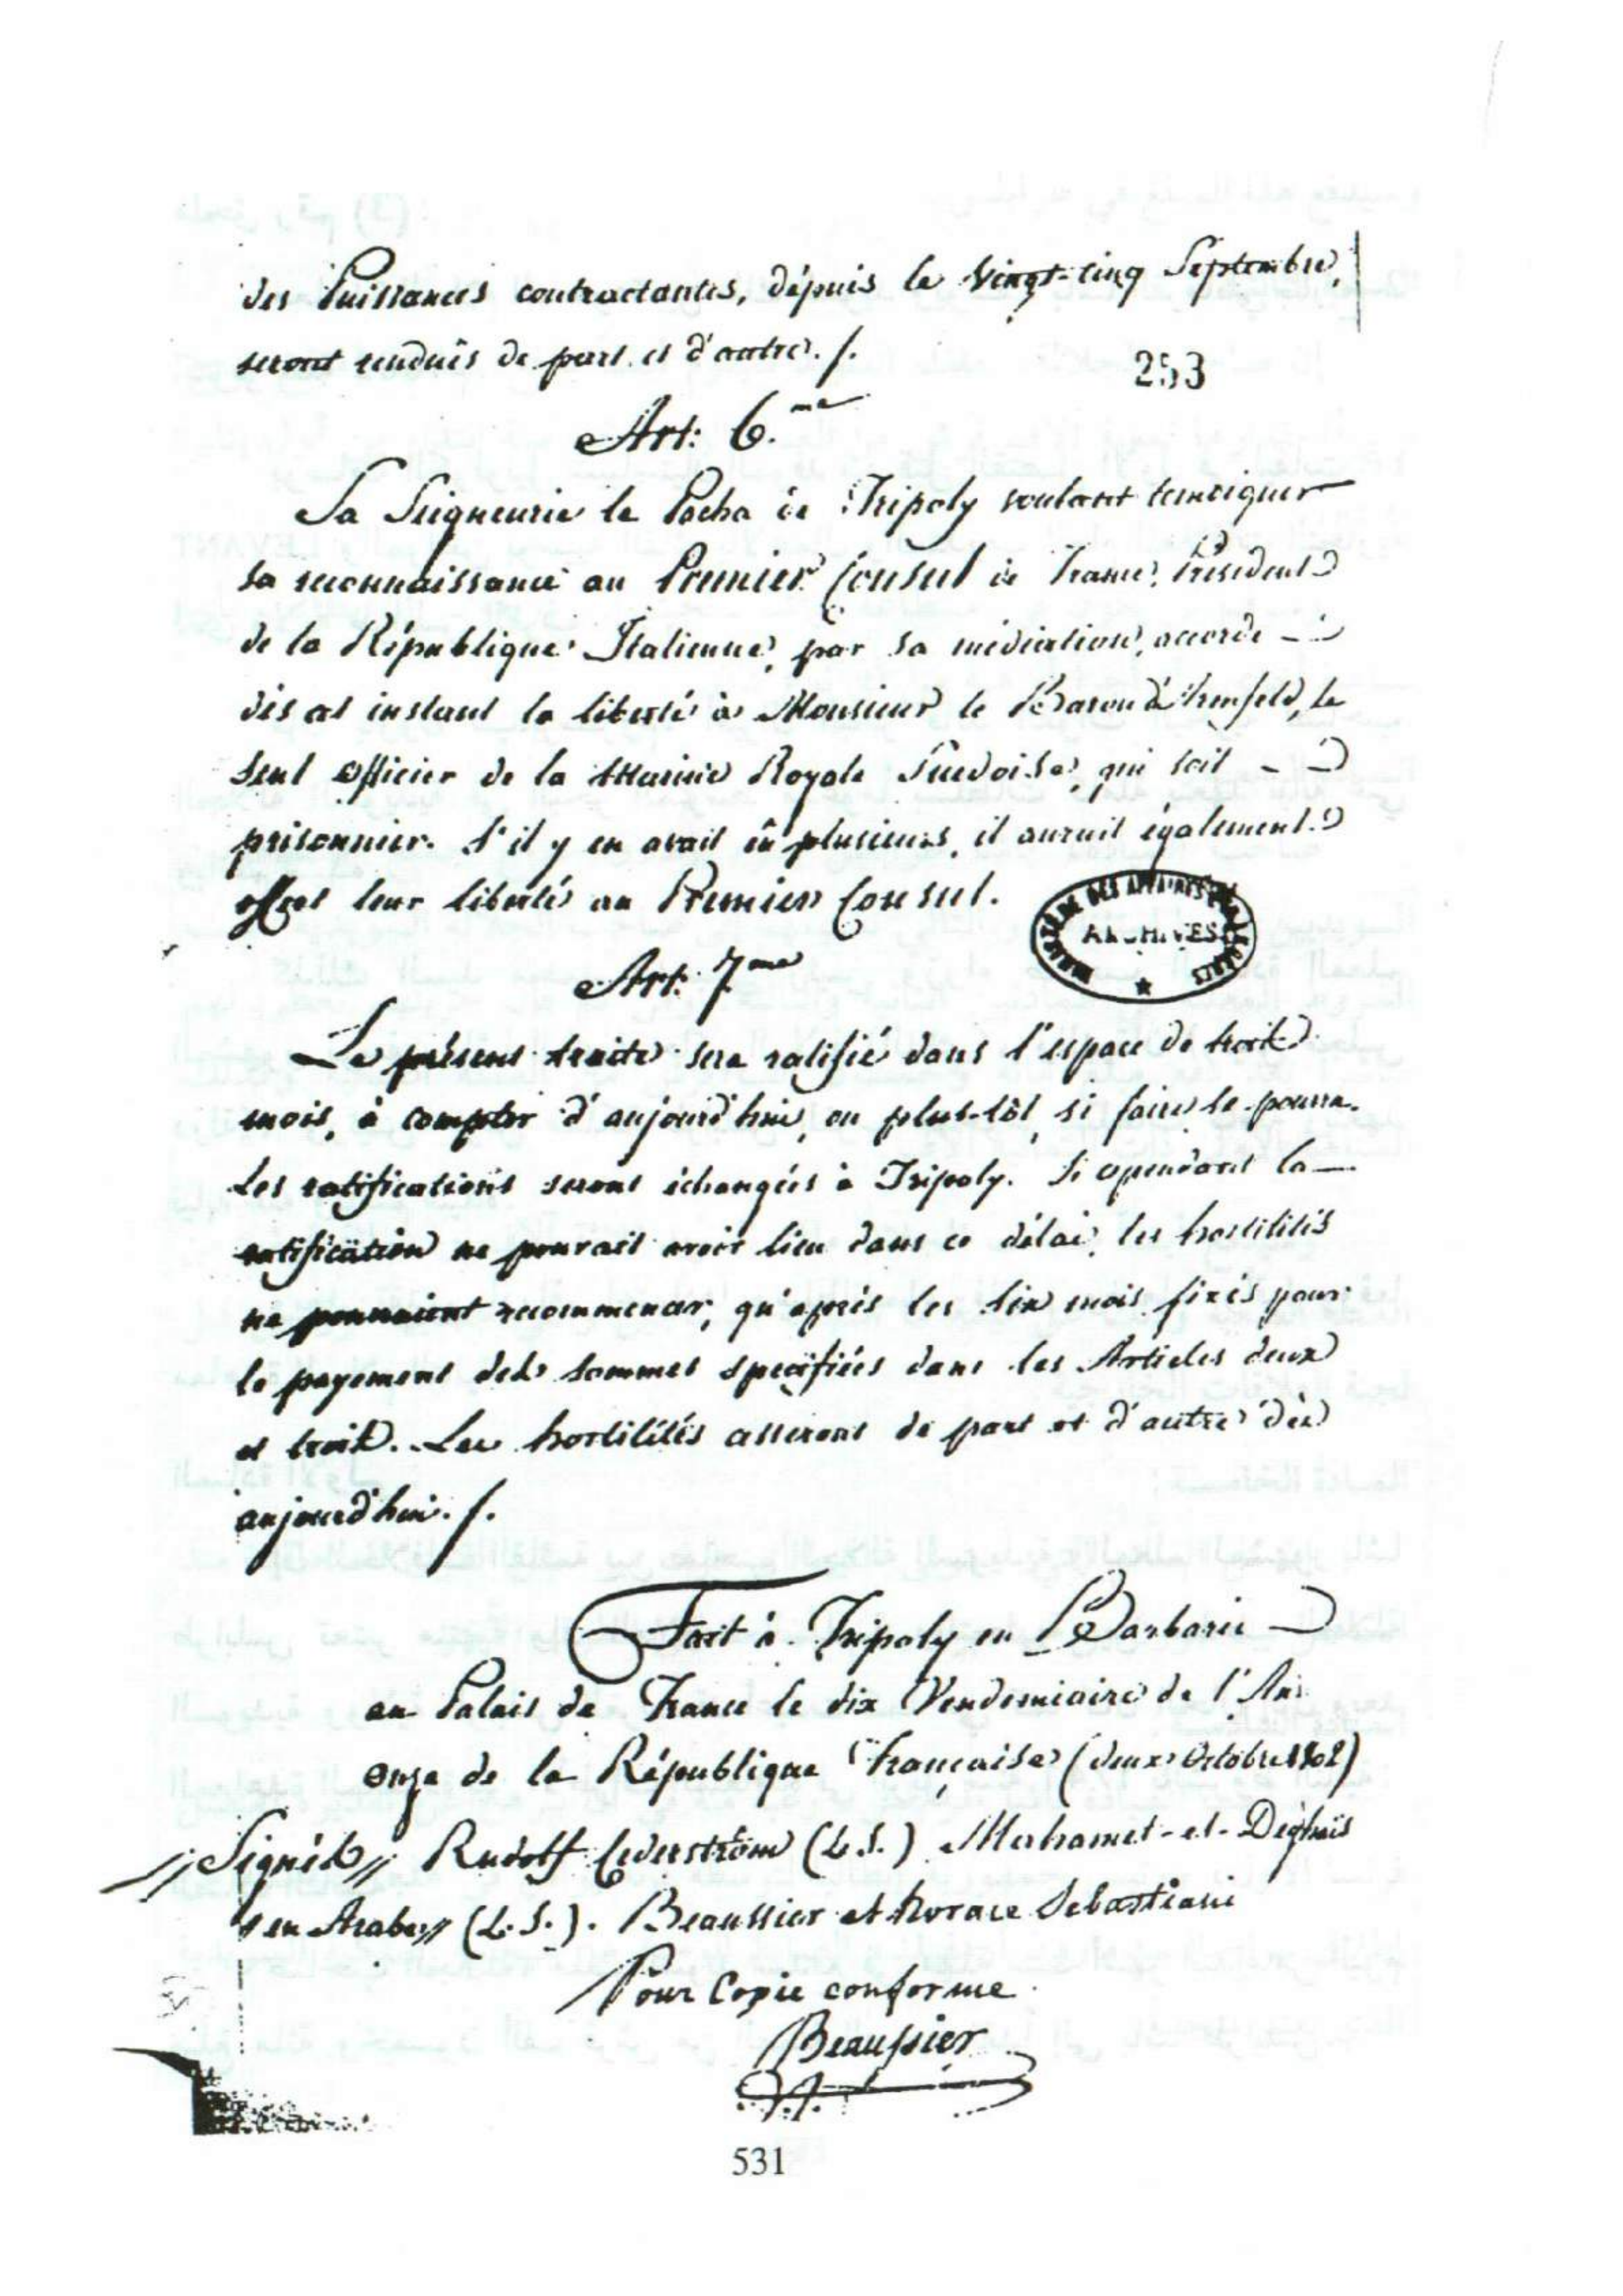 des Puissances contractantes, dépuis le Vingt-cinq Septembre,
seront rendues de part et d'autre. /.
253
Art: 6.me
Sa Seigneurie le Pacha de Tripoly voulant temoigner
sa reconnaissance au Premier Consul de France, Président
de la République Italienne, par sa médiation, accorde
dès cet instant la liberté à Monsieur le Baron d'Armfeld, le
seul officier de la Marine Royale Suedoise, qui soit
prisonnier. S'il y en avait eû plusieurs, il aurait également
offert leur liberté au Premier Consul.
MINISTÈRE DES AFFAIRES ÉTRANGÈRES
ARCHIVES
Art: 7.me
Le présent traité sera ratifié dans l'espace de trois
mois, à compter d'aujourd'hui, ou plus-tôt, si faire se pourra.
Les ratifications seront échangées à Tripoly. Si cependant la
ratification ne pouvait avoir lieu dans ce délai, les hostilités
ne pourraient recommencer, qu'après les six mois fixés pour
le payement des sommes specifiées dans les Articles deux
et trois. Les hostilités cesseront de part et d'autre dès
aujourd'hui. /.
Fait à Tripoly en Barbarie
au Palais de France le dix Vendemiaire de l'An
onze de la République Française (deux Octobre 1802)
Signés Rudolf Cederström (L.S.) Mehamet-el-Deghaïs
en Arabe (L.S.). Beaussier et horace Sebastiani
Pour Copie conforme
Beaussier
531